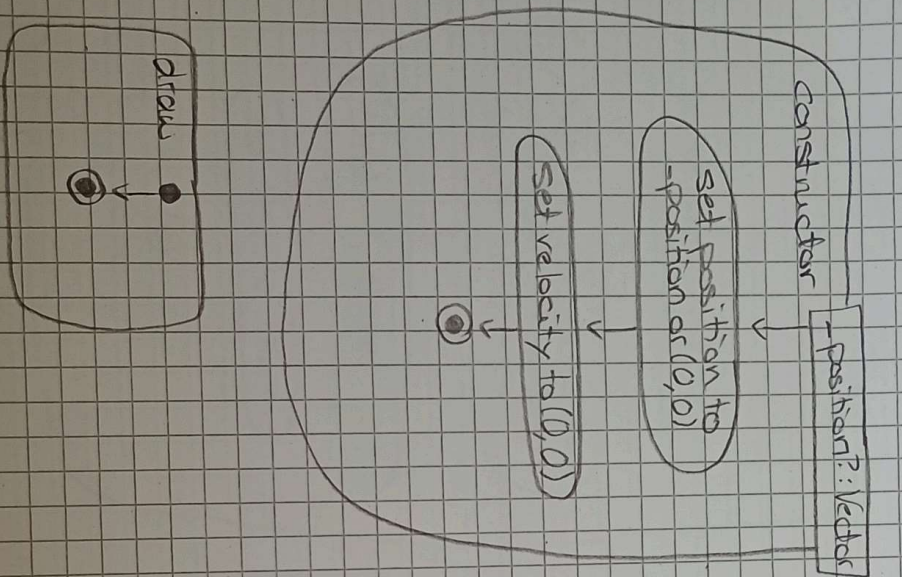 constructor
_position?: Vector
set position to
_position or (0,0)
set velocity to (0,0)
draw